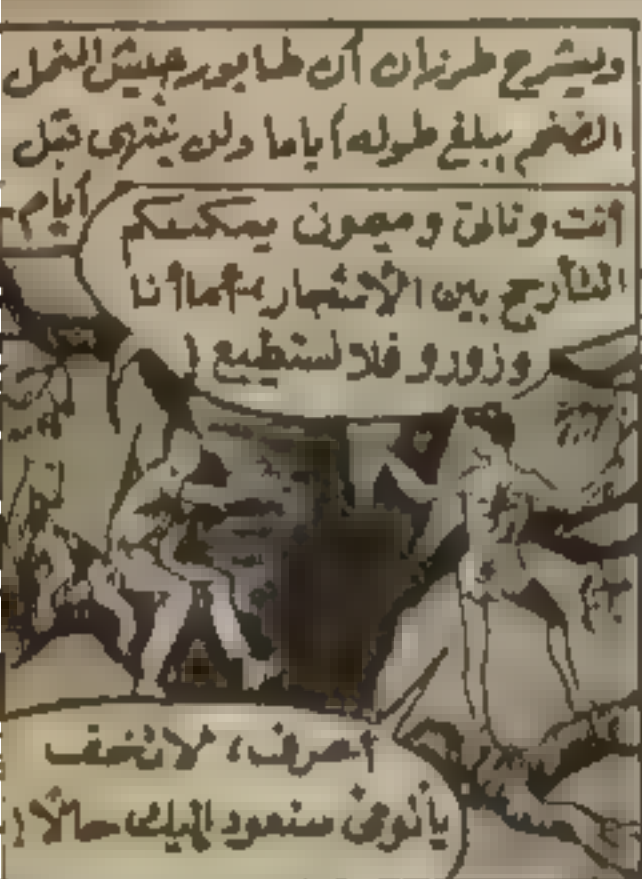 ويشرح طرزان أن طابور جيش النمل
الضخم يبلغ طوله أياما ولن ينتهى قبل
أيام
أنت ونانى وميمون يمكنكم
التأرجح بين الأشجار، أما أنا
وزورو فلا نستطيع !
أعرف، لا تخف
سنعود إليك حالا !